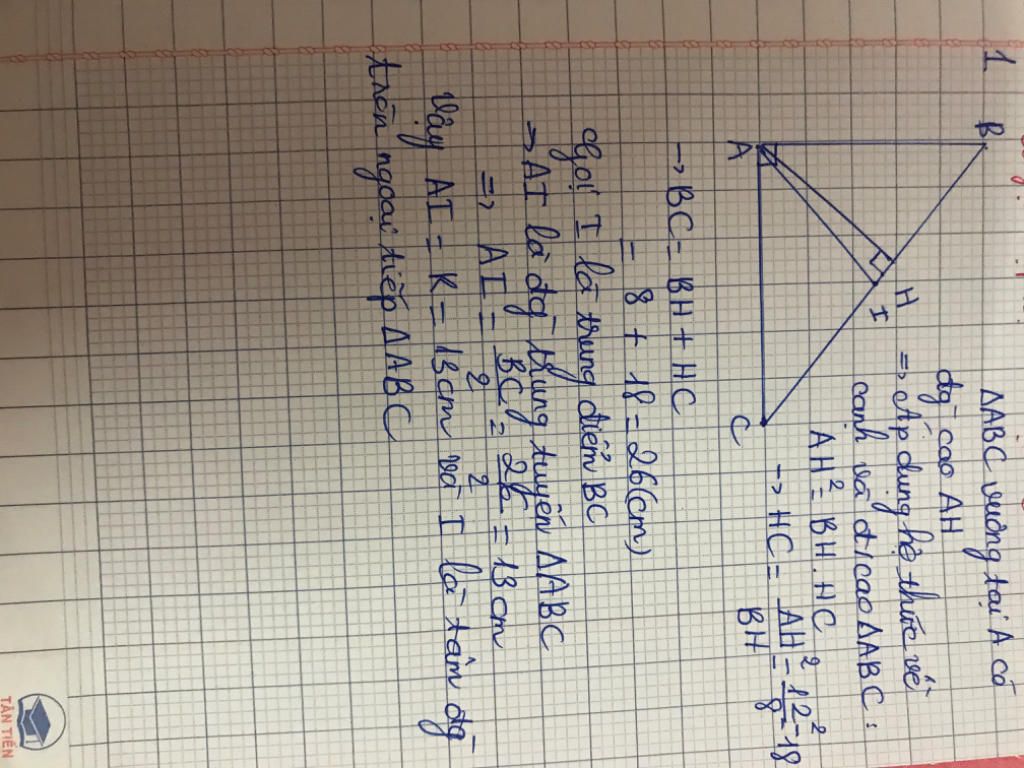 1
B
A
H
I
C
ΔABC vuông tại A có
đg- cao AH
=> Áp dụng hệ thức về
cạnh và đ/cao ΔABC :
AH² = BH . HC
-> HC = AH²/BH = 12²/8 = 18
-> BC = BH + HC
= 8 + 18 = 26 (cm)
Gọi I là trung điểm BC
-> AI là đg- trung tuyến ΔABC
=> AI = BC/2 = 26/2 = 13 cm
Vậy AI = R = 13cm và I là tâm đg-
tròn ngoại tiếp ΔABC
TÂN TIẾN